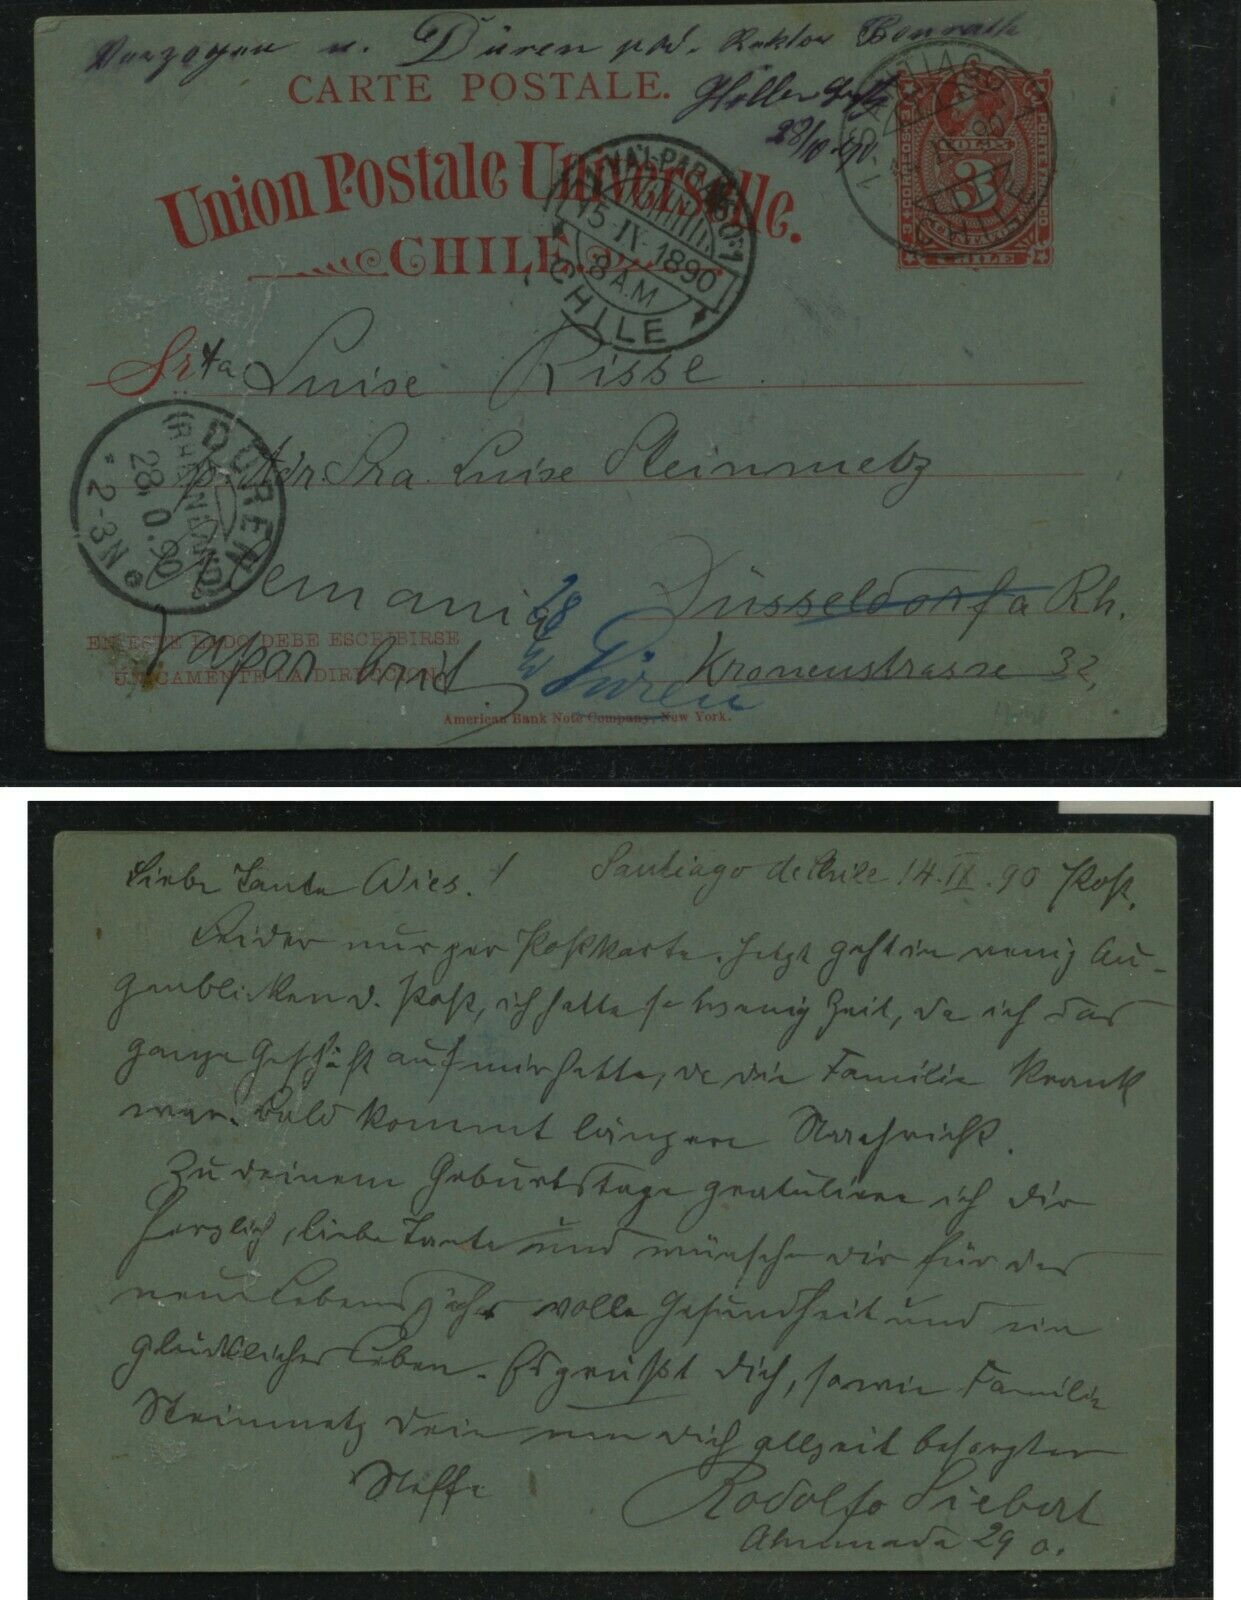 Verzogen n. Düren per. Rektor Benrath
CARTE POSTALE.
28/10 90
Union Postale Universelle.
CHILE
VALPARAISO
15-IX-1890
8 A.M
CHILE
SANTIAGO
CHILE
CORREOS
PORTE
3
CHILE
Srta Luise Risse
p. Adr. Sra. Luise Steinmetz
DÜREN
(RHEINLAND)
28.10.90
2-3N
Alemania Düsseldorf a Rh.
EN ESTE LADO DEBE ESCRIBIRSE
UNICAMENTE LA DIRECCION
Kronenstrasse 32,
Düren
American Bank Note Company, New York.
Liebe Tante Wies! Santiago de Chile 14.IX.90 Post.
Leider nur per Postkarte. Jetzt geht in wenig Au-
genblicken d. Post, ich hatte so wenig Zeit, da ich das
ganze Geschäft auf mir hatte, da die Familie krank
war. Bald kommt längere Nachricht.
Zu deinem Geburtstage gratuliere ich dir
herzlich, liebe Tante und wünsche dir für das
neue Lebensjahr volle Gesundheit und ein
glückliches Leben. Es grüßt dich, sowie Familie
Steinmetz dein um dich allzeit besorgter
Neffe Rodolfo Siebert
Ahumada 29 a.